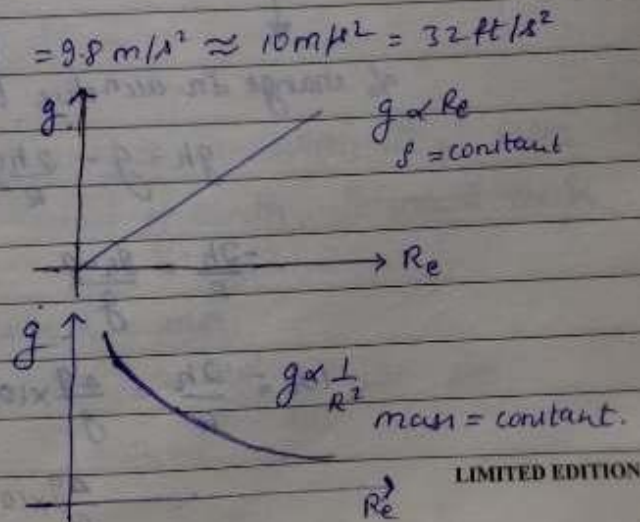 = 9.8 m/s² ≈ 10 m/s² = 32 ft/s²
g
g ∝ Re
ρ = constant
Re
g
g ∝ 1/R²
mass = constant.
LIMITED EDITION
Re